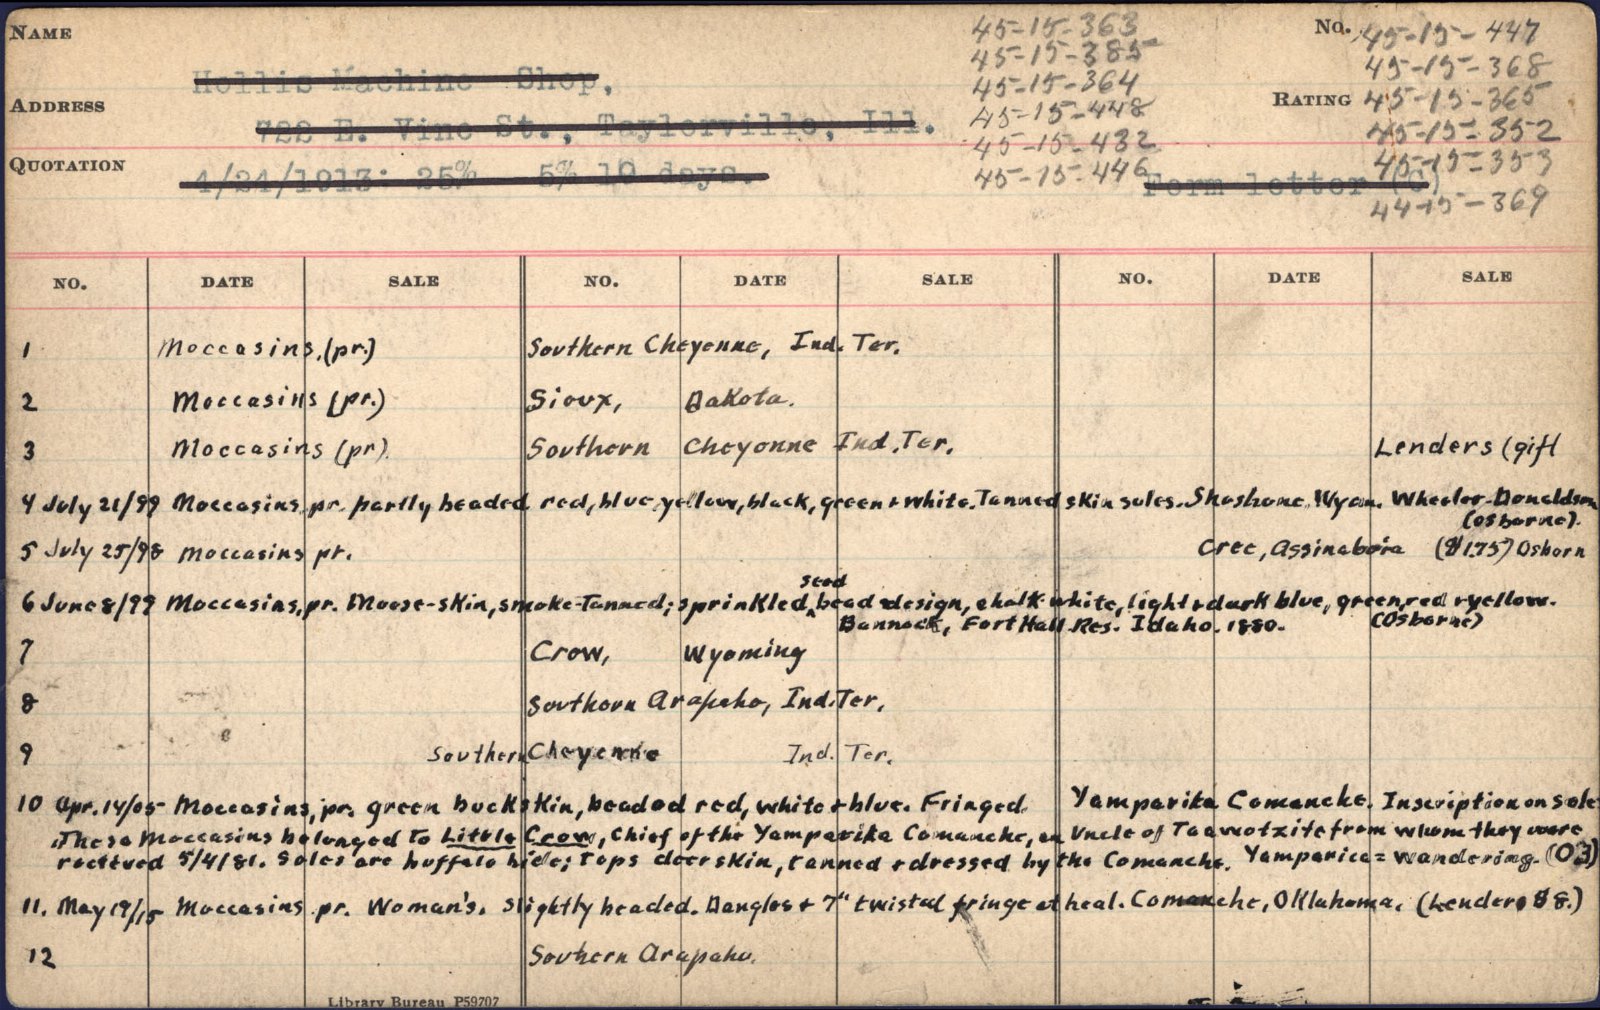 NAME
Hollis Machine Shop,
ADDRESS
722 E. Vine St., Taylorville, Ill.
QUOTATION
4/24/1913: 25% 5% 10 days.
Form letter (C)
45-15-363
45-15-385
45-15-364
45-15-448
45-15-432
45-15-446
No. 45-15-447
45-15-368
RATING 45-15-365
45-15-352
45-15-353
44-15-369
NO. DATE SALE NO. DATE SALE NO. DATE SALE
1 Moccasins, (pr.) Southern Cheyenne, Ind. Ter.
2 Moccasins (pr.) Sioux, Dakota.
3 Moccasins (pr). Southern Cheyenne Ind. Ter. Lenders (gift
4 July 21/99 Moccasins, pr. partly beaded red, blue, yellow, black, green + white. Tanned skin soles. Shoshone, Wyom. Wheeler-Donaldson
(Osborne).
5 July 25/98 Moccasins pr. Cree, Assinaboia ($1.75) Osborn
6 June 8/99 Moccasins, pr. Moose-skin, smoke-Tanned; sprinkled seed bead design, chalk white, light + dark blue, green, red + yellow.
Bannock, Fort Hall Res. Idaho. 1880. (Osborne)
7 Crow, Wyoming
8 Southern Arapaho, Ind. Ter.
9 Southern Cheyenne Ind. Ter.
10 Apr. 14/05 Moccasins, pr. green buckskin, beaded red, white + blue. Fringed. Yamparika Comanche. Inscription on sole
"These Moccasins belonged to Little Crow, Chief of the Yamparika Comanche, an Uncle of from whom they were
received 5/4/81. Soles are buffalo hide; tops deerskin, tanned + dressed by the Comanche. Yamparica = wandering. (03)
11. May 19/15 Moccasins pr. Woman's. slightly beaded. Dangles + 7" twisted fringe at heal. Comanche, Oklahoma. (Lenders $8.)
12 Southern Arapaho.
Library Bureau P59707